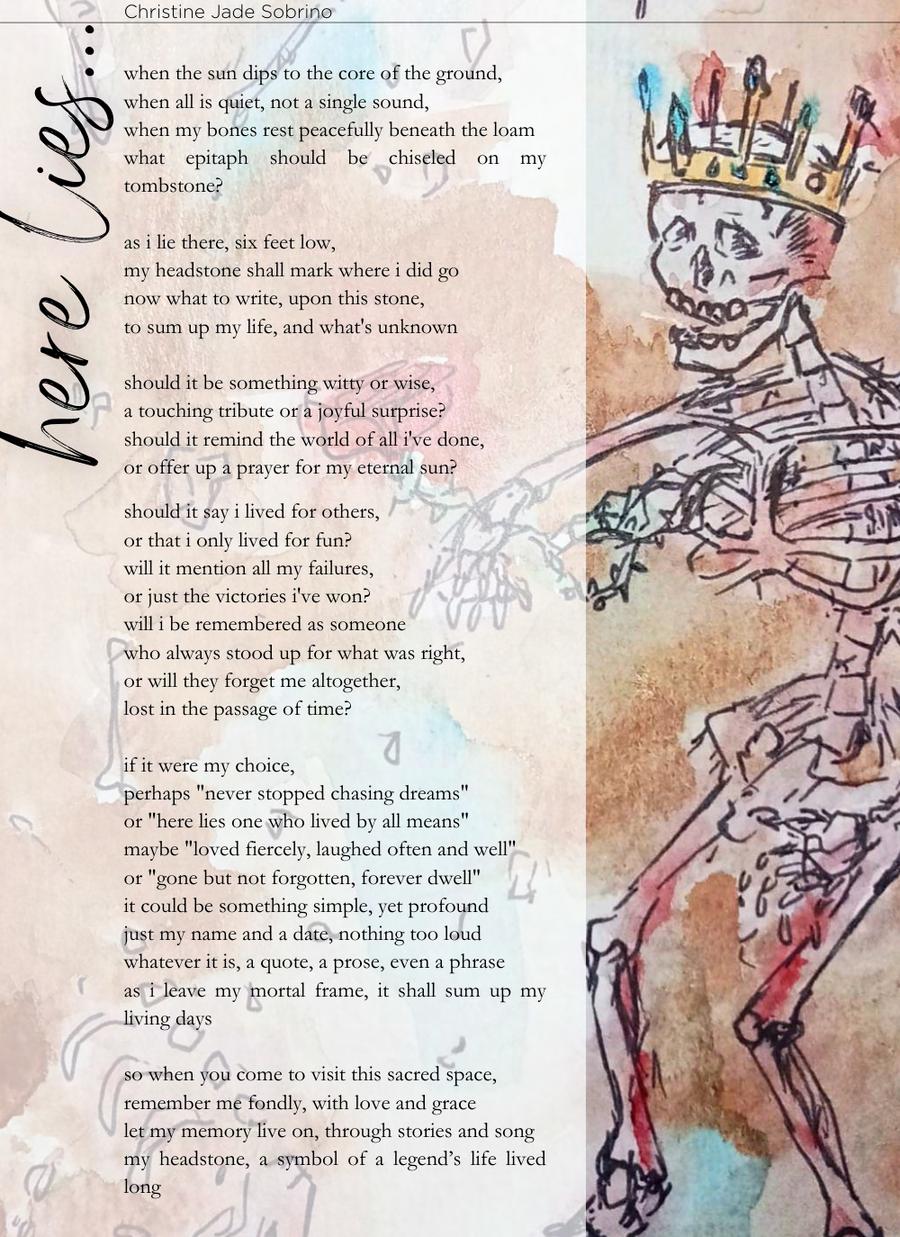 Christine Jade Sobrino
here lies...
when the sun dips to the core of the ground,
when all is quiet, not a single sound,
when my bones rest peacefully beneath the loam
what epitaph should be chiseled on my
tombstone?
as i lie there, six feet low,
my headstone shall mark where i did go
now what to write, upon this stone,
to sum up my life, and what's unknown
should it be something witty or wise,
a touching tribute or a joyful surprise?
should it remind the world of all i've done,
or offer up a prayer for my eternal sun?
should it say i lived for others,
or that i only lived for fun?
will it mention all my failures,
or just the victories i've won?
will i be remembered as someone
who always stood up for what was right,
or will they forget me altogether,
lost in the passage of time?
if it were my choice,
perhaps "never stopped chasing dreams"
or "here lies one who lived by all means"
maybe "loved fiercely, laughed often and well"
or "gone but not forgotten, forever dwell"
it could be something simple, yet profound
just my name and a date, nothing too loud
whatever it is, a quote, a prose, even a phrase
as i leave my mortal frame, it shall sum up my
living days
so when you come to visit this sacred space,
remember me fondly, with love and grace
let my memory live on, through stories and song
my headstone, a symbol of a legend’s life lived
long